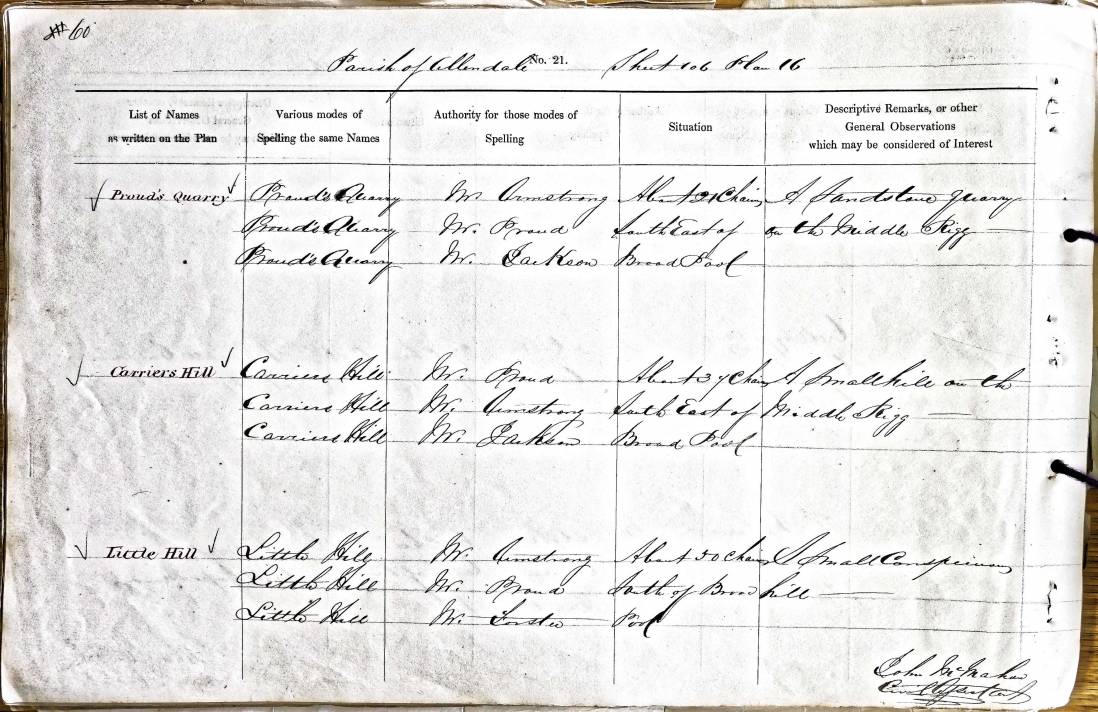 60
Parish of Allendale No. 21. Sheet 106 Plan 16
List of Names
as written on the Plan
Various modes of
Spelling the same Names
Authority for those modes of
Spelling
Situation
Descriptive Remarks, or other
General Observations
which may be considered of Interest
Proud's Quarry Proud's Quarry Mr. Armstrong About Chains A Sandstone Quarry
Proud's Quarry Mr. Proud South East of on the Middle Rigg
Proud's Quarry Mr. Jackson Broad Pool
Carriers Hill Carriers Hill Mr. Proud About 37 Chains A Small hill on the
Carriers Hill Mr. Armstrong South East of Middle Rigg
Carriers Hill Mr. Jackson Broad Pool
Little Hill Little Hill Mr. Armstrong About 50 Chains A Small Conspicuous
Little Hill Mr. Proud South of Broad hill
Little Hill Mr. Forster Pool
John McMahon